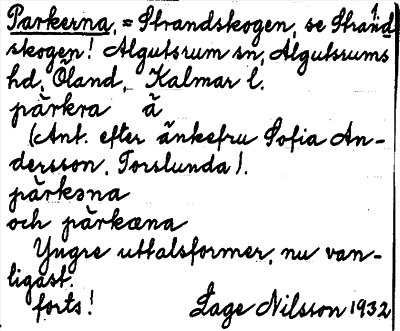 Parkerna, = Strandskogen, se Strand
skogen! Algutsrum sn, Algutsrums
hd, Öland, Kalmar l.
pàrkra ă
(Ant. efter änkefru Sofia An-
dersson, Torslunda).
pàrkəna
och pàrkæna
Yngre uttalsformer, nu van-
ligast.
forts! Lage Nilsson 1932